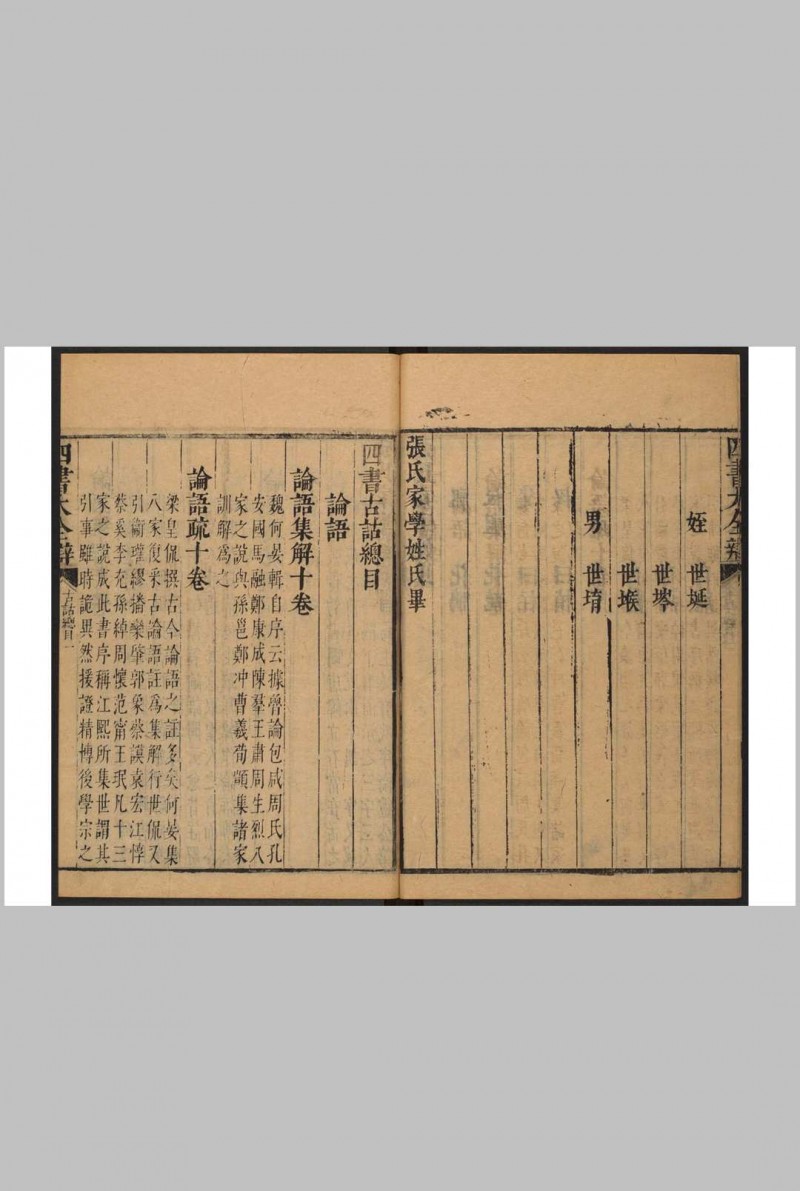 四書大全辯
姪 世埏
世埁
世堠
男 世堉
張氏家學姓氏畢
四書古詁總目
論語
論語集解十卷
魏何晏輯自序云據魯論包咸周氏孔
安國馬融鄭康成陳羣王肅周生烈八
家之說與孫邕鄭冲曹羲荀顗集諸家
訓解爲之
論語疏十卷
梁皇侃撰古今論語之註多矣何晏集
八家復采古論語註爲集解行世侃又
引衞瓘繆播欒肇郭象蔡謨袁宏江惇
蔡奚李充孫綽周懷范甯王珉凡十三
家之說成此書序稱江熙所集世謂其
引事雖時詭異然援證精博後學宗之
四書大全辯 古詁總目 一